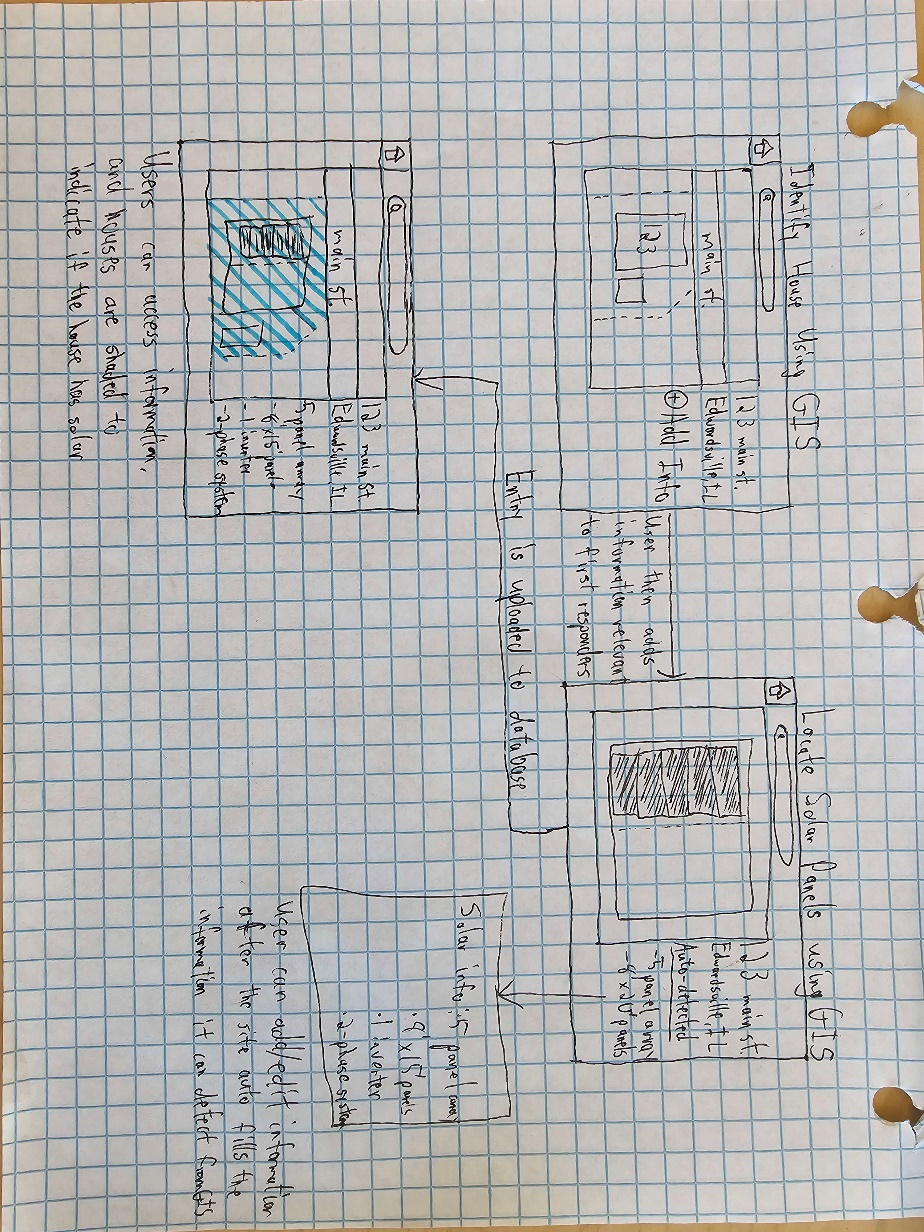 Identify House Using GIS
main st.
123
123 main st.
Edwardsville, IL
+ Add Info
User then adds
information relevant
to first responders
Locate Solar Panels using GIS
123 main st.
Edwardsville, IL
Auto-detected
-5 panel array
panels
Entry is uploaded to database
Solar info: 5 panel array
1 inverter
2-phase system
User can add/edit information
after the site auto fills the
information it can detect from GIS
main st.
123 main st
Edwardsville, IL
5 panel array
-1 inverter
-2-phase system
Users can access information,
and houses are shaded to
indicate if the house has solar